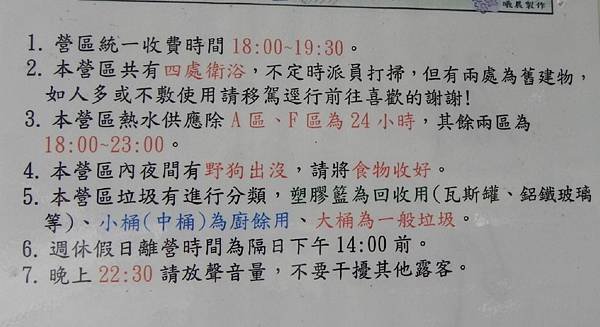 曦晨製作
1. 營區統一收費時間 18:00~19:30。
2. 本營區共有四處衛浴，不定時派員打掃，但有兩處為舊建物，
如人多或不敷使用請移駕逕行前往喜歡的謝謝!
3. 本營區熱水供應除 A 區、F 區為 24 小時，其餘兩區為
18:00~23:00。
4. 本營區內夜間有野狗出沒，請將食物收好。
5. 本營區垃圾有進行分類，塑膠籃為回收用(瓦斯罐、鋁鐵玻璃
等)、小桶(中桶)為廚餘用、大桶為一般垃圾。
6. 週休假日離營時間為隔日下午 14:00 前。
7. 晚上 22:30 請放聲音量，不要干擾其他露客。